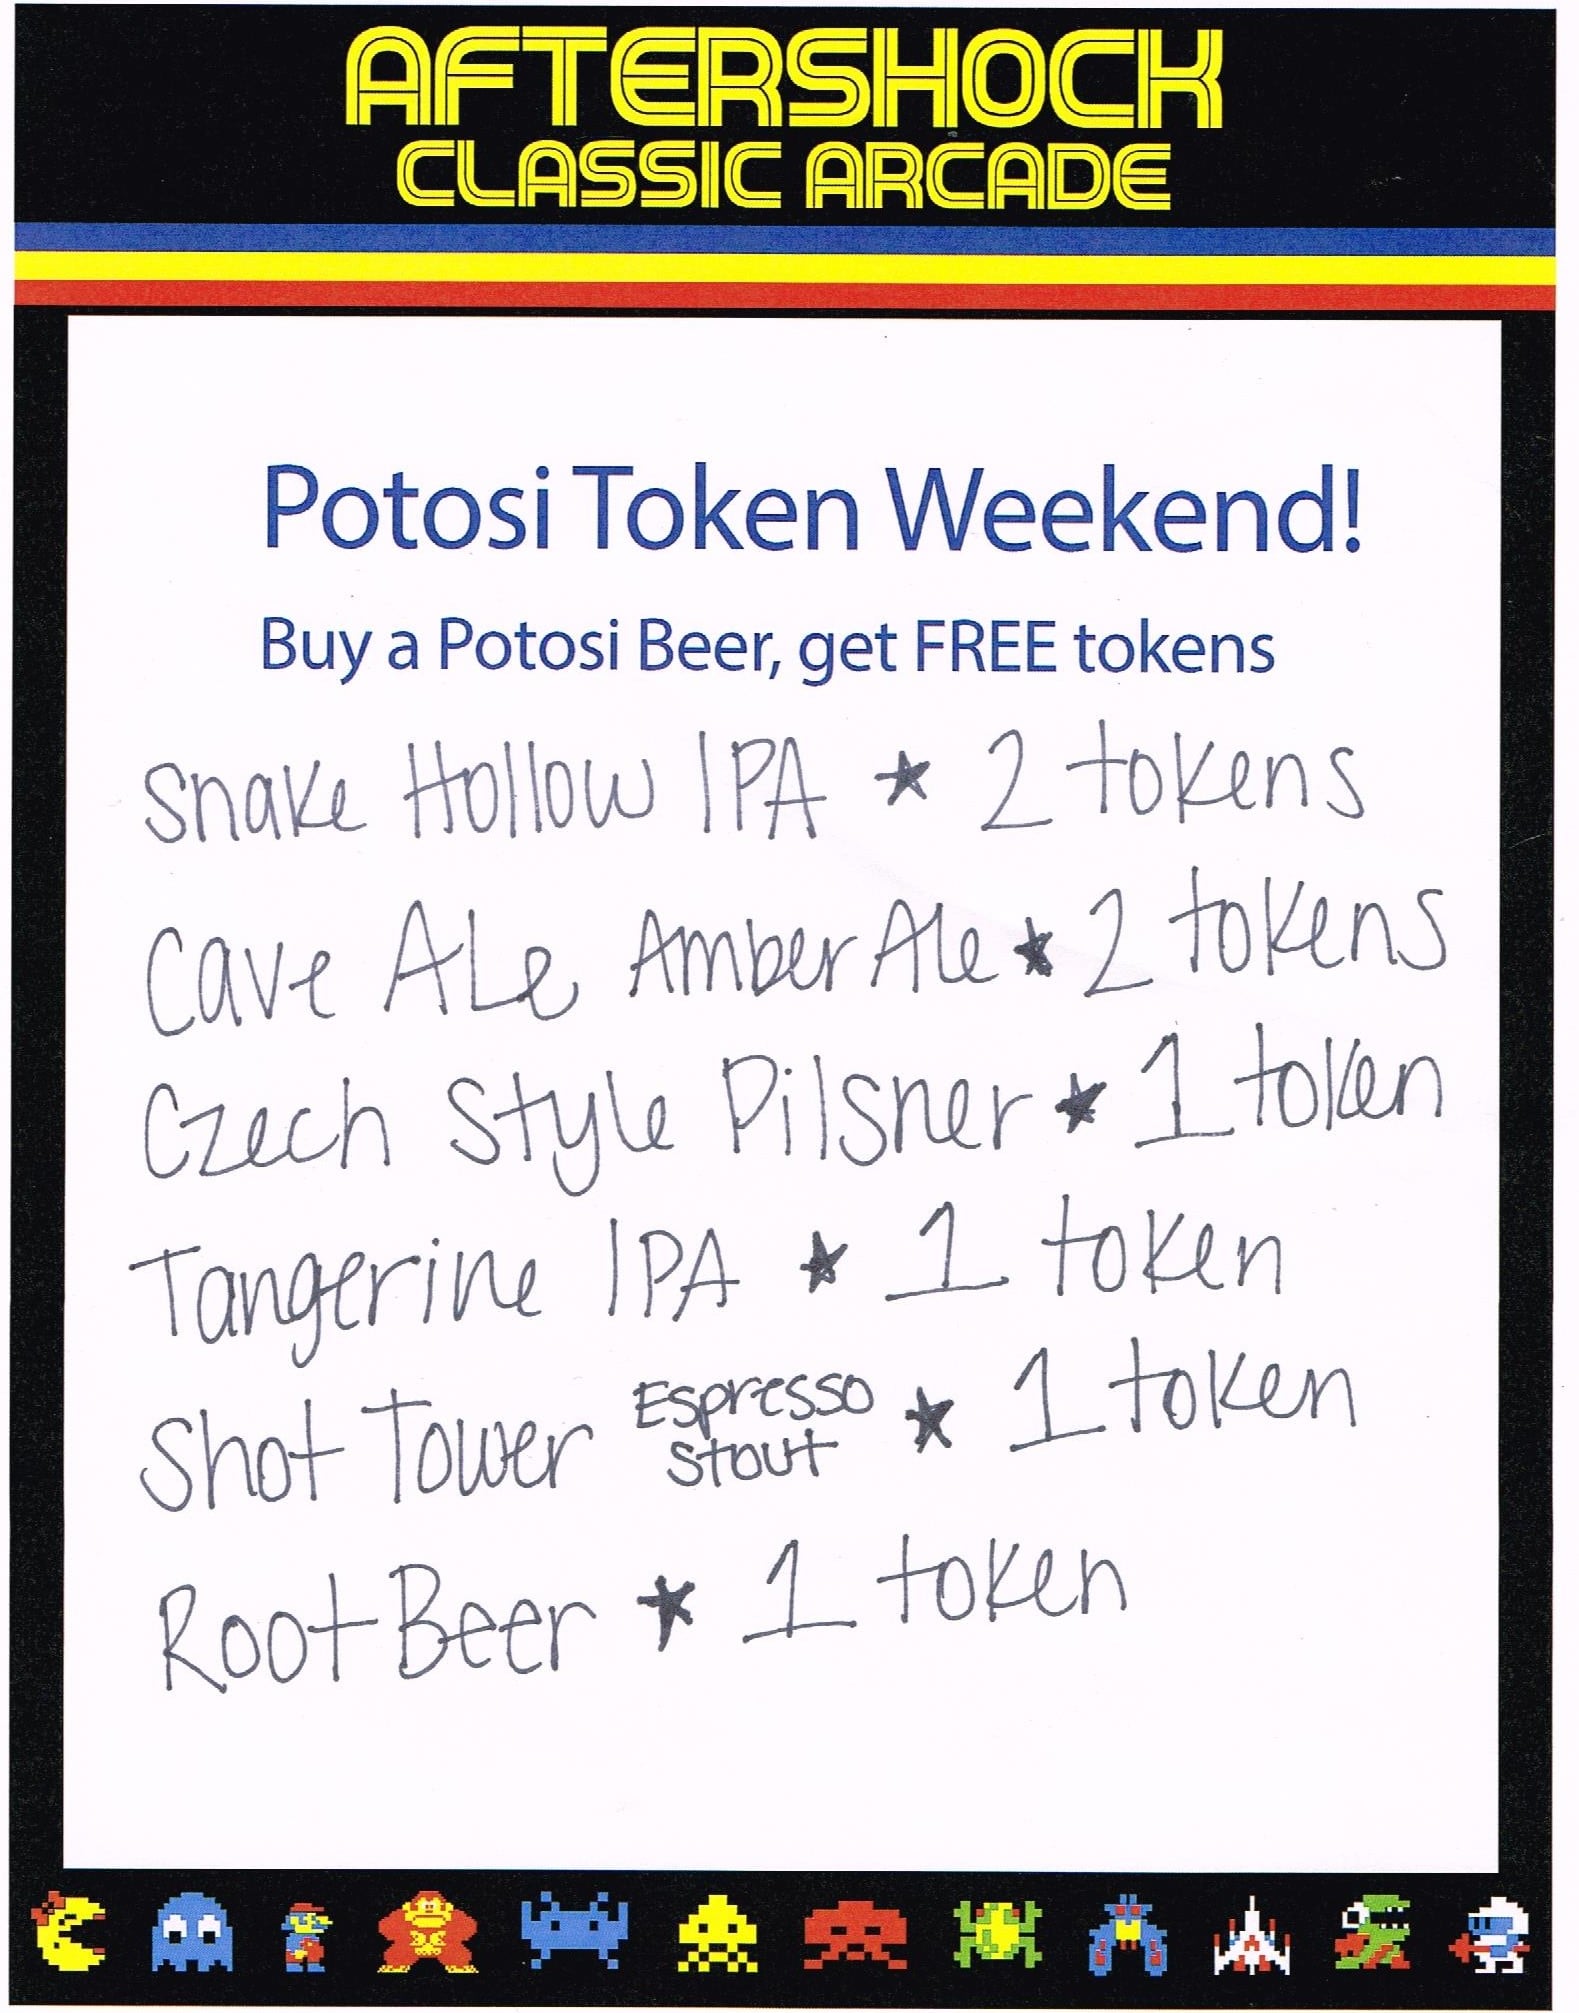 AFTERSHOCK
CLASSIC ARCADE
Potosi Token Weekend!
Buy a Potosi Beer, get FREE tokens
Snake Hollow IPA ★ 2 tokens
Cave Ale Amber Ale ★ 2 tokens
Czech Style Pilsner ★ 1 token
Tangerine IPA ★ 1 token
Shot Tower Espresso Stout ★ 1 token
Root Beer ★ 1 token